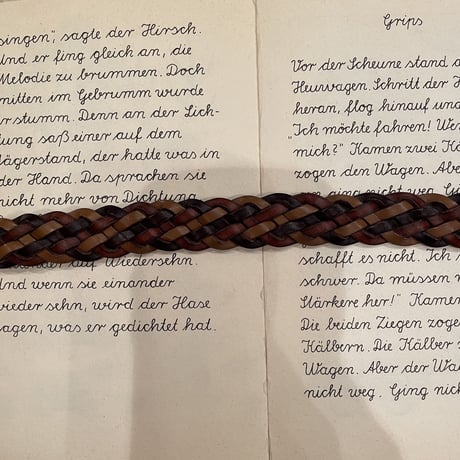 singen", sagte der Hirsch.
Und er fing gleich an, die
Melodie zu brummen. Doch
mitten im Gebrumm wurde
er stumm. Denn an der Lich-
tung saß einer auf dem
Jägerstand, der hatte was in
der Hand. Da sprachen sie
nicht mehr von Dichtung
auf Wiedersehn.
Und wenn sie einander
wieder sehn, wird der Hase
sagen, was er gedichtet hat.
Grips
Vor der Scheune stand
Heuwagen. Schritt der H
heran, flog hinauf und
"Ich möchte fahren! Wer
mich?" Kamen zwei Kä
zogen den Wagen. Aber
ging nicht weg. Ging
schafft es nicht. Ich s
schwer. Da müssen n
Stärkere her!" Kamen
Die beiden Ziegen zoge
Kälbern. Die Kälber z
Wagen. Aber der Wa
nicht weg. Ging nich